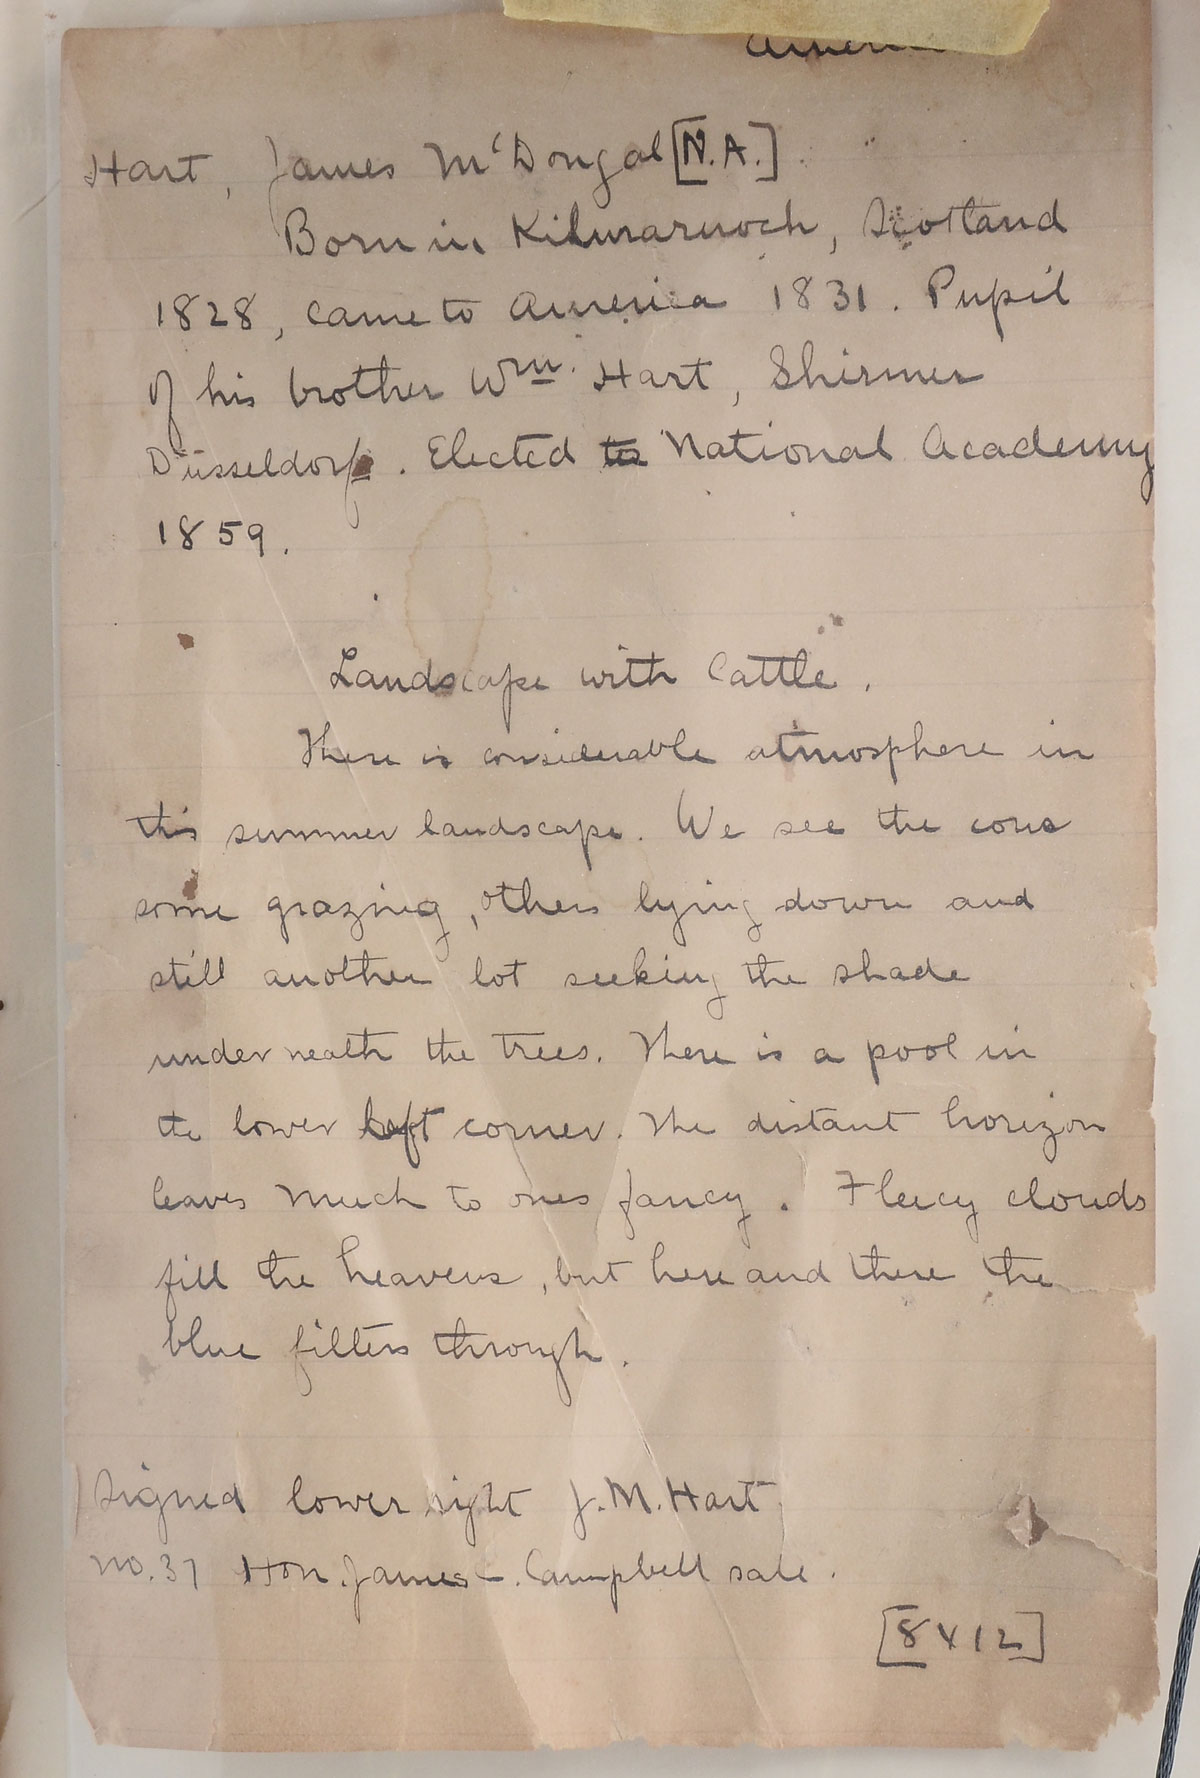 Hart, James Mc'Dongal [N.A.]
Born in Kilmarnoch, Scotland
1828, came to America 1831. Pupil
of his brother Wm. Hart, Shirmer
Düsseldorf. Elected to National Academy
1859.
Landscape with Cattle.
There is considerable atmosphere in
this summer landscape. We see the cows
some grazing, others lying down and
still another lot seeking the shade
underneath the trees. There is a pool in
the lower left corner. The distant horizon
leaves much to ones fancy. Fleecy clouds
fill the heavens, but here and there the
blue filters through.
Signed lower right J.M. Hart
No. 37 Hon. James Campbell sale.
[8 x 12]